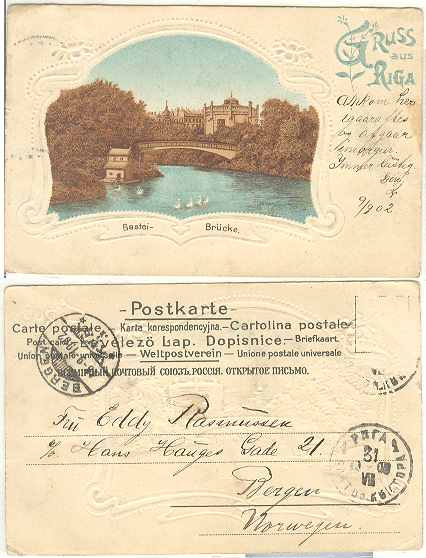 GRUSS
aus
RIGA
Ankom her
og afgaar
imorgen.
Immer lustig
9/ 902
Bastei- Brücke.
-Postkarte-
Carte postale - Karta korespondencyjna. - Cartolina postale
Post card - Levelező Lap. Dopisnice - Briefkaart.
Union postale universelle - Weltpostverein - Unione postale universale
ВСЕМІРНЫЙ ПОЧТОВЫЙ СОЮЗЪ. РОССІЯ. ОТКРЫТОЕ ПИСЬМО.
BERGEN
Frü Eddy Rasmussen
c/o Hans Hauges Gade 21.
Bergen
Norwegen.
РИГА
31
VII